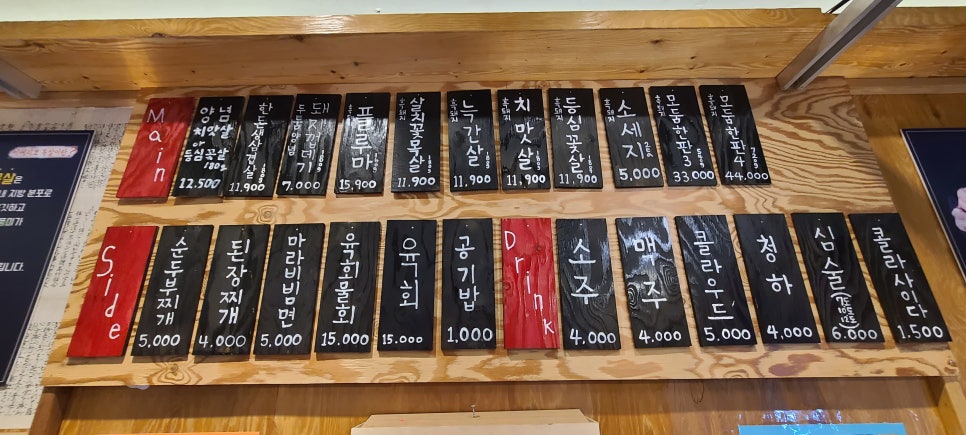 Main
양념
치맛살
or
등심꽃살
180g
12.500
한돈생삼겹살
11.900
돼지껍데기
7.000
흑돼지
플루마
15.900
흑돼지
삼치꽃목살
180g
11.900
흑돼지
늑간살
180g
11.900
흑돼지
치맛살
180g
11.900
흑돼지
등심꽃살
180g
11.900
흑돼지
소세지
5.000
흑돼지
모듬한판3
33.000
흑돼지
모듬한판4
44.000
Side
순두부찌개
5.000
된장찌개
4.000
마라비빔면
5.000
육회물회
15.000
육회
15.000
공기밥
1.000
Drink
소주
4.000
맥주
4.000
클라우드
5.000
청하
4.000
심술
6.000
콜라사이다
1.500